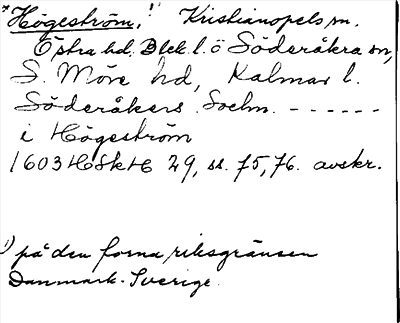 *Högeström,¹⁾ Kristianopels sn.
Östra hd. Blek. l. ö Söderåkra sn,
S. Möre hd, Kalmar l.
Söderåkers Soehn ------
i Högeström
1603 HSkH 29, ss. 75, 76. avskr.
¹⁾ på den forna riksgränsen
Danmark-Sverige.